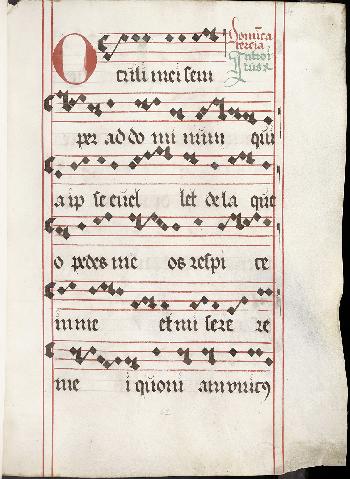 Dominica
tercia
Introitus
Oculi mei sem
per ad do mi num qui
a ip se euel let de la que
o pedes me os respi ce
in me et mi sere re
me i quoni am vnicꝰ